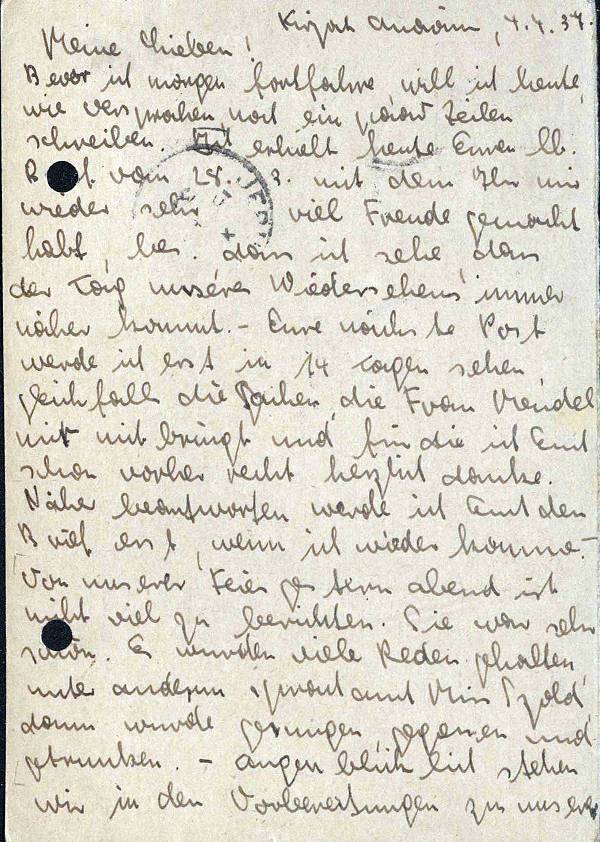 Kirjat Anavim, 4.4.37.
Meine Lieben!
Bevor ich morgen fortfahre, will ich heute,
wie versprochen, noch ein paar Zeilen
schreiben. Ich erhielt heute Euren lb.
Brief vom 28. 3. mit dem Ihr mir
wieder sehr viel Freude gemacht
habt, bes. dass ich sehe, dass
der Tag unseres Wiedersehens immer
näher kommt. - Eure nächste Post
werde ich erst in 14 Tagen sehen,
gleichfalls die Sachen, die Frau Mendel
mir mitbringt und für die ich Euch
schon vorher recht herzlich danke.
Näher beantworten werde ich Euch den
Brief erst, wenn ich wieder komme. -
Von unserer Feier gestern abend ist
nicht viel zu berichten. Sie war sehr
schön. Es wurden viele Reden gehalten,
unter anderem sprach auch Miss Szold,
dann wurde gesungen, gegessen und
getrunken. - Augenblicklich stehen
wir in den Vorbereitungen zu unserer